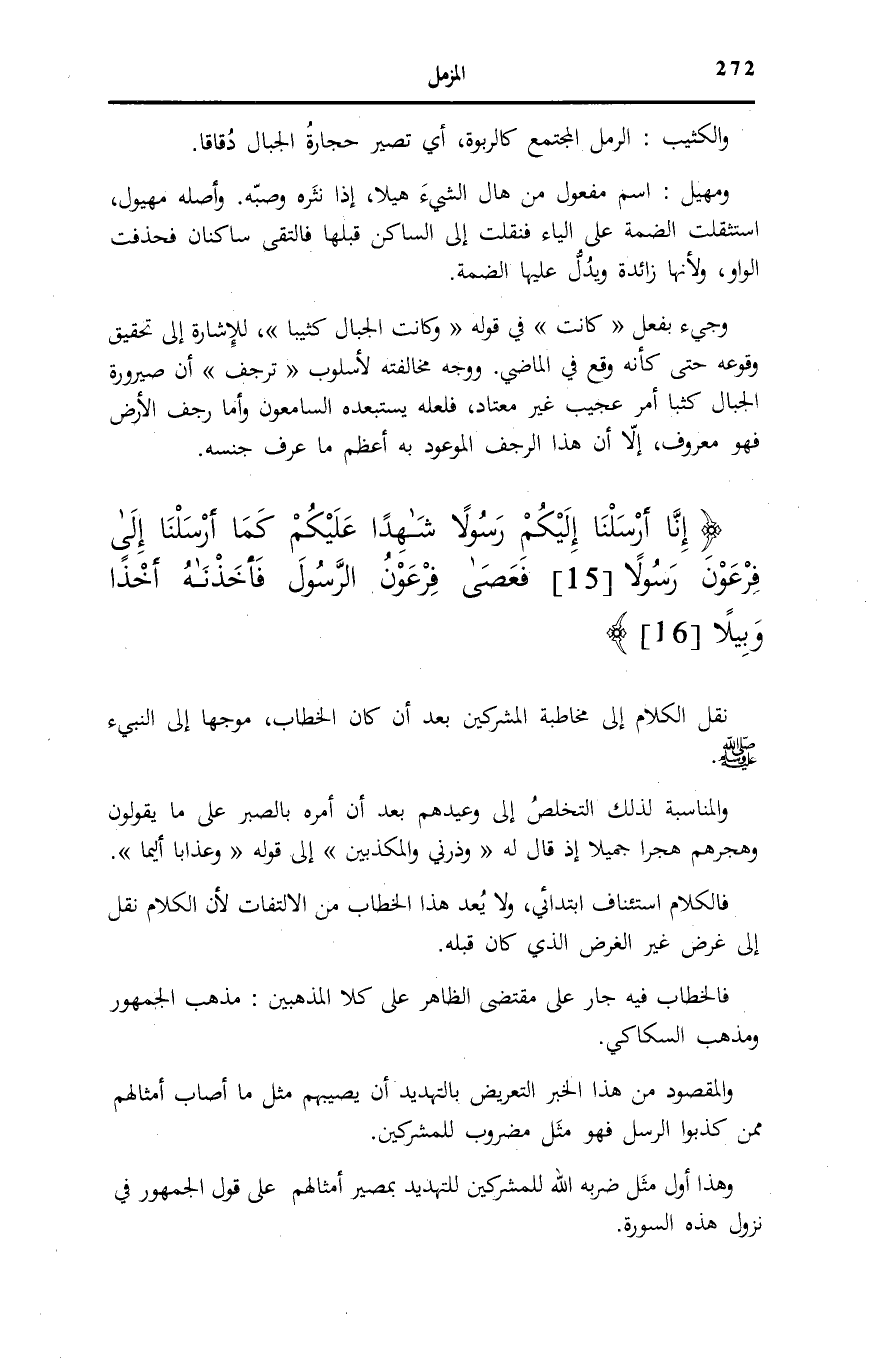 272
المزمل
والكثيب : الرمل المجتمع كالربوة، أي تصير حجارةُ الجبال دُقاقا.
ومهيل : اسم مفعول من هال الشيءَ هيلا، إذا نثَره وصبّه. وأصله مهيول،
استثقلت الضمة على الياء فنقلت إلى الساكن قبلها فالتقى ساكنان فحذفت
الواو، ولأنها زائدة ويدُلُّ عليها الضمة.
وجيء بفعل « كانت » في قوله « وكانت الجبال كثيبا »، للإِشارة إلى تحقيق
وقوعه حتى كأنه وقع في الماضي. ووجه مخالفته لأسلوب « ترجف » أن صيرورة
الجبال كثبا أمر عجيب غير معتاد، فلعله يستبعده السامعون وأما رجف الأرض
فهو معروف، إلّا أن هذا الرجف الموعود به أعظم ما عرف جنسه.
﴿ إِنَّا أَرْسَلْنَا إِلَيْكُمْ رَسُولًا شَـٰهِدًا عَلَيْكُمْ كَمَا أَرْسَلْنَا إِلَىٰ
فِرْعَوْنَ رَسُولًا [15] فَعَصَىٰ فِرْعَوْنُ الرَّسُولَ فَأَخَذْنَـٰهُ أَخْذًا
وَبِيلًا [16] ﴾
نقل الكلام إلى مخاطبة المشركين بعد أن كان الخطاب، موجها إلى النبيء
ﷺ.
والمناسبة لذلك التخلصُ إلى وعيدهم بعد أن أمره بالصبر على ما يقولون
وهجرهم هجرا جميلا إذ قال له « وذرني والمكذبين » إلى قوله « وعذابا أليما ».
فالكلام استئناف ابتدائي، ولا يُعد هذا الخطاب من الالتفات لأن الكلام نقل
إلى غرض غير الغرض الذي كان قبله.
فالخطاب فيه جار على مقتضى الظاهر على كلا المذهبين : مذهب الجمهور
ومذهب السكاكي.
والمقصود من هذا الخبر التعريض بالتهديد أن يصيبهم مثل ما أصاب أمثالهم
ممن كذبوا الرسل فهو مثَل مضروب للمشركين.
وهذا أول مثَل ضربه الله للمشركين للتهديد بمصير أمثالهم على قول الجمهور في
نزول هذه السورة.